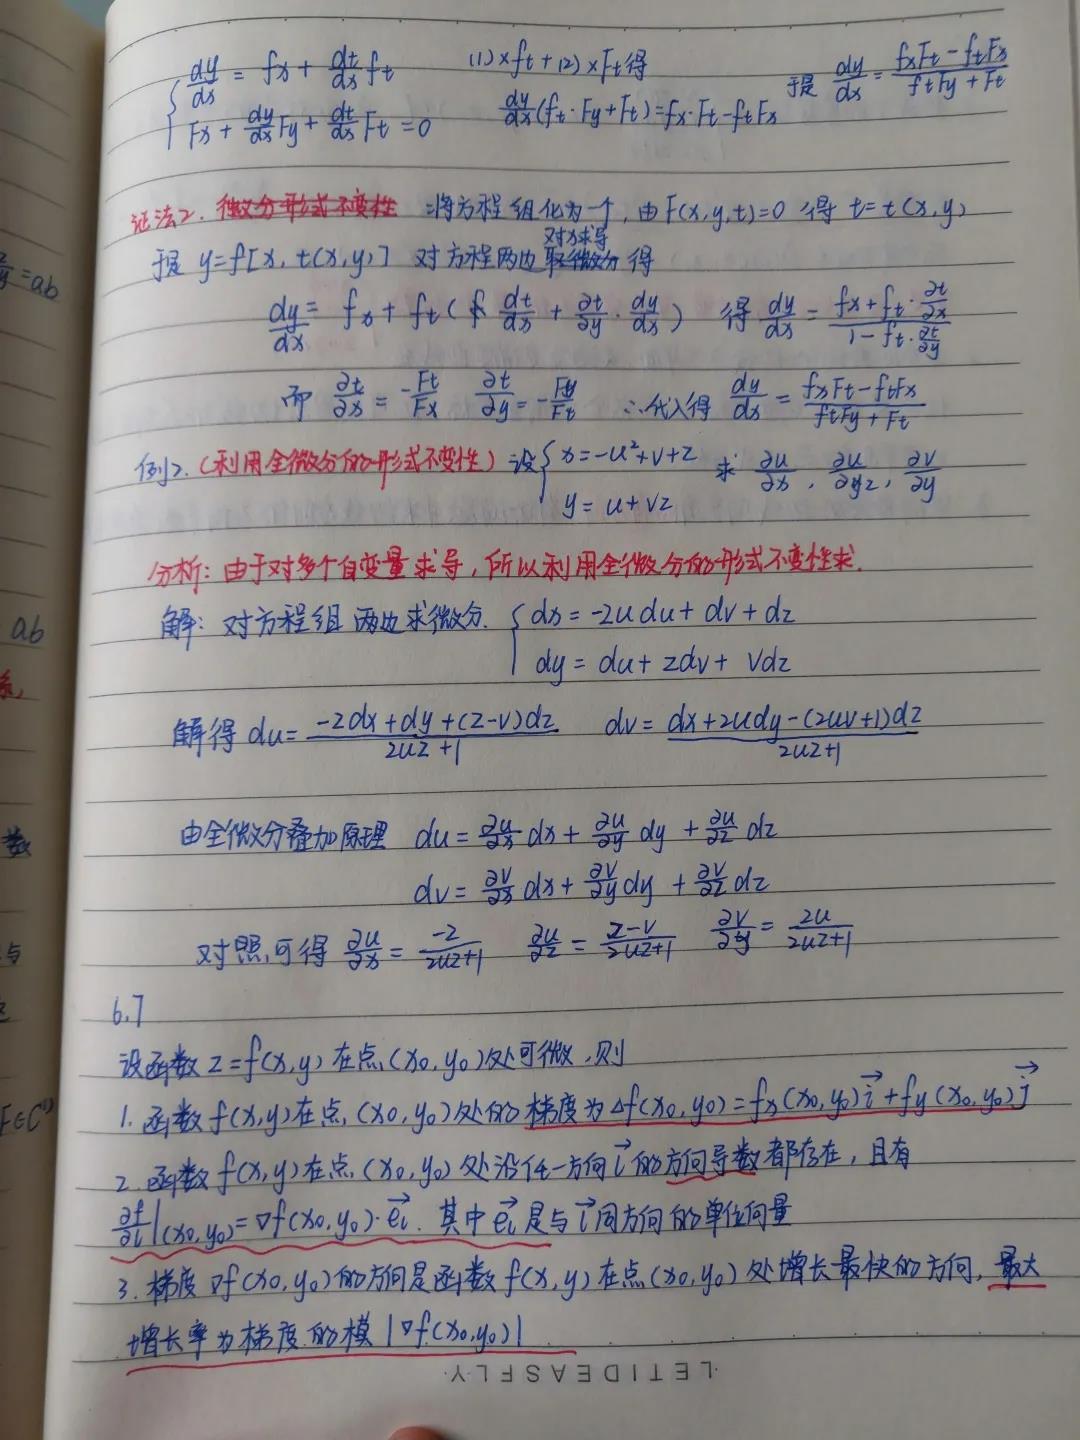 dy/dx = fx + dt/dx ft  (1)×ft+(2)×Ft得  于是 dy/dx = (fxFt-ftFx)/(ftFy+Ft)
Fx + dy/dx Fy + dt/dx Ft = 0  dy/dx(ft·Fy+Ft)=fx·Ft-ftFx
证法2. 微分形式不变性 :将方程组化为一个,由F(x,y,t)=0 得 t=t(x,y)
对x求导
于是 y=f[x,t(x,y)] 对方程两边 取微分 得
dy/dx = fx + ft( dt/dx + ∂t/∂y · dy/dx ) 得 dy/dx = (fx+ft·∂t/∂x)/(1-ft·∂t/∂y)
而 ∂t/∂x = -Ft/Fx  ∂t/∂y = -Fy/Ft  ∴代入得 dy/dx = (fxFt-ftFx)/(ftFy+Ft)
例2.(利用全微分的形式不变性) 设 { x=-u²+v+z  求 ∂u/∂x, ∂u/∂z, ∂v/∂y
y=u+vz
分析:由于对多个自变量求导,所以利用全微分的形式不变性求.
解:对方程组两边求微分. { dx=-2udu+dv+dz
dy=du+zdv+vdz
解得 du= (-zdx+dy+(z-v)dz)/(2uz+1)  dv= (dx+2udy-(2uv+1)dz)/(2uz+1)
由全微分叠加原理 du= ∂u/∂x dx + ∂u/∂y dy + ∂u/∂z dz
dv= ∂v/∂x dx + ∂v/∂y dy + ∂v/∂z dz
对照,可得 ∂u/∂x = -z/(2uz+1)  ∂u/∂z = (z-v)/(2uz+1)  ∂v/∂y = 2u/(2uz+1)
6.7
设函数 z=f(x,y)在点(x0,y0)处可微,则
1.函数f(x,y)在点(x0,y0)处的梯度为△f(x0,y0)=fx(x0,y0)i→+fy(x0,y0)j→
2.函数f(x,y)在点(x0,y0)处沿任一方向l→的方向导数都存在,且有
∂f/∂l|(x0,y0)=▽f(x0,y0)·el→.其中el→是与l→同方向的单位向量
3.梯度▽f(x0,y0)的方向是函数f(x,y)在点(x0,y0)处增长最快的方向,最大
增长率为梯度的模|▽f(x0,y0)|
·LETIDEASFLY·
=ab
ab
系,
数
与
F∈C⁽¹⁾